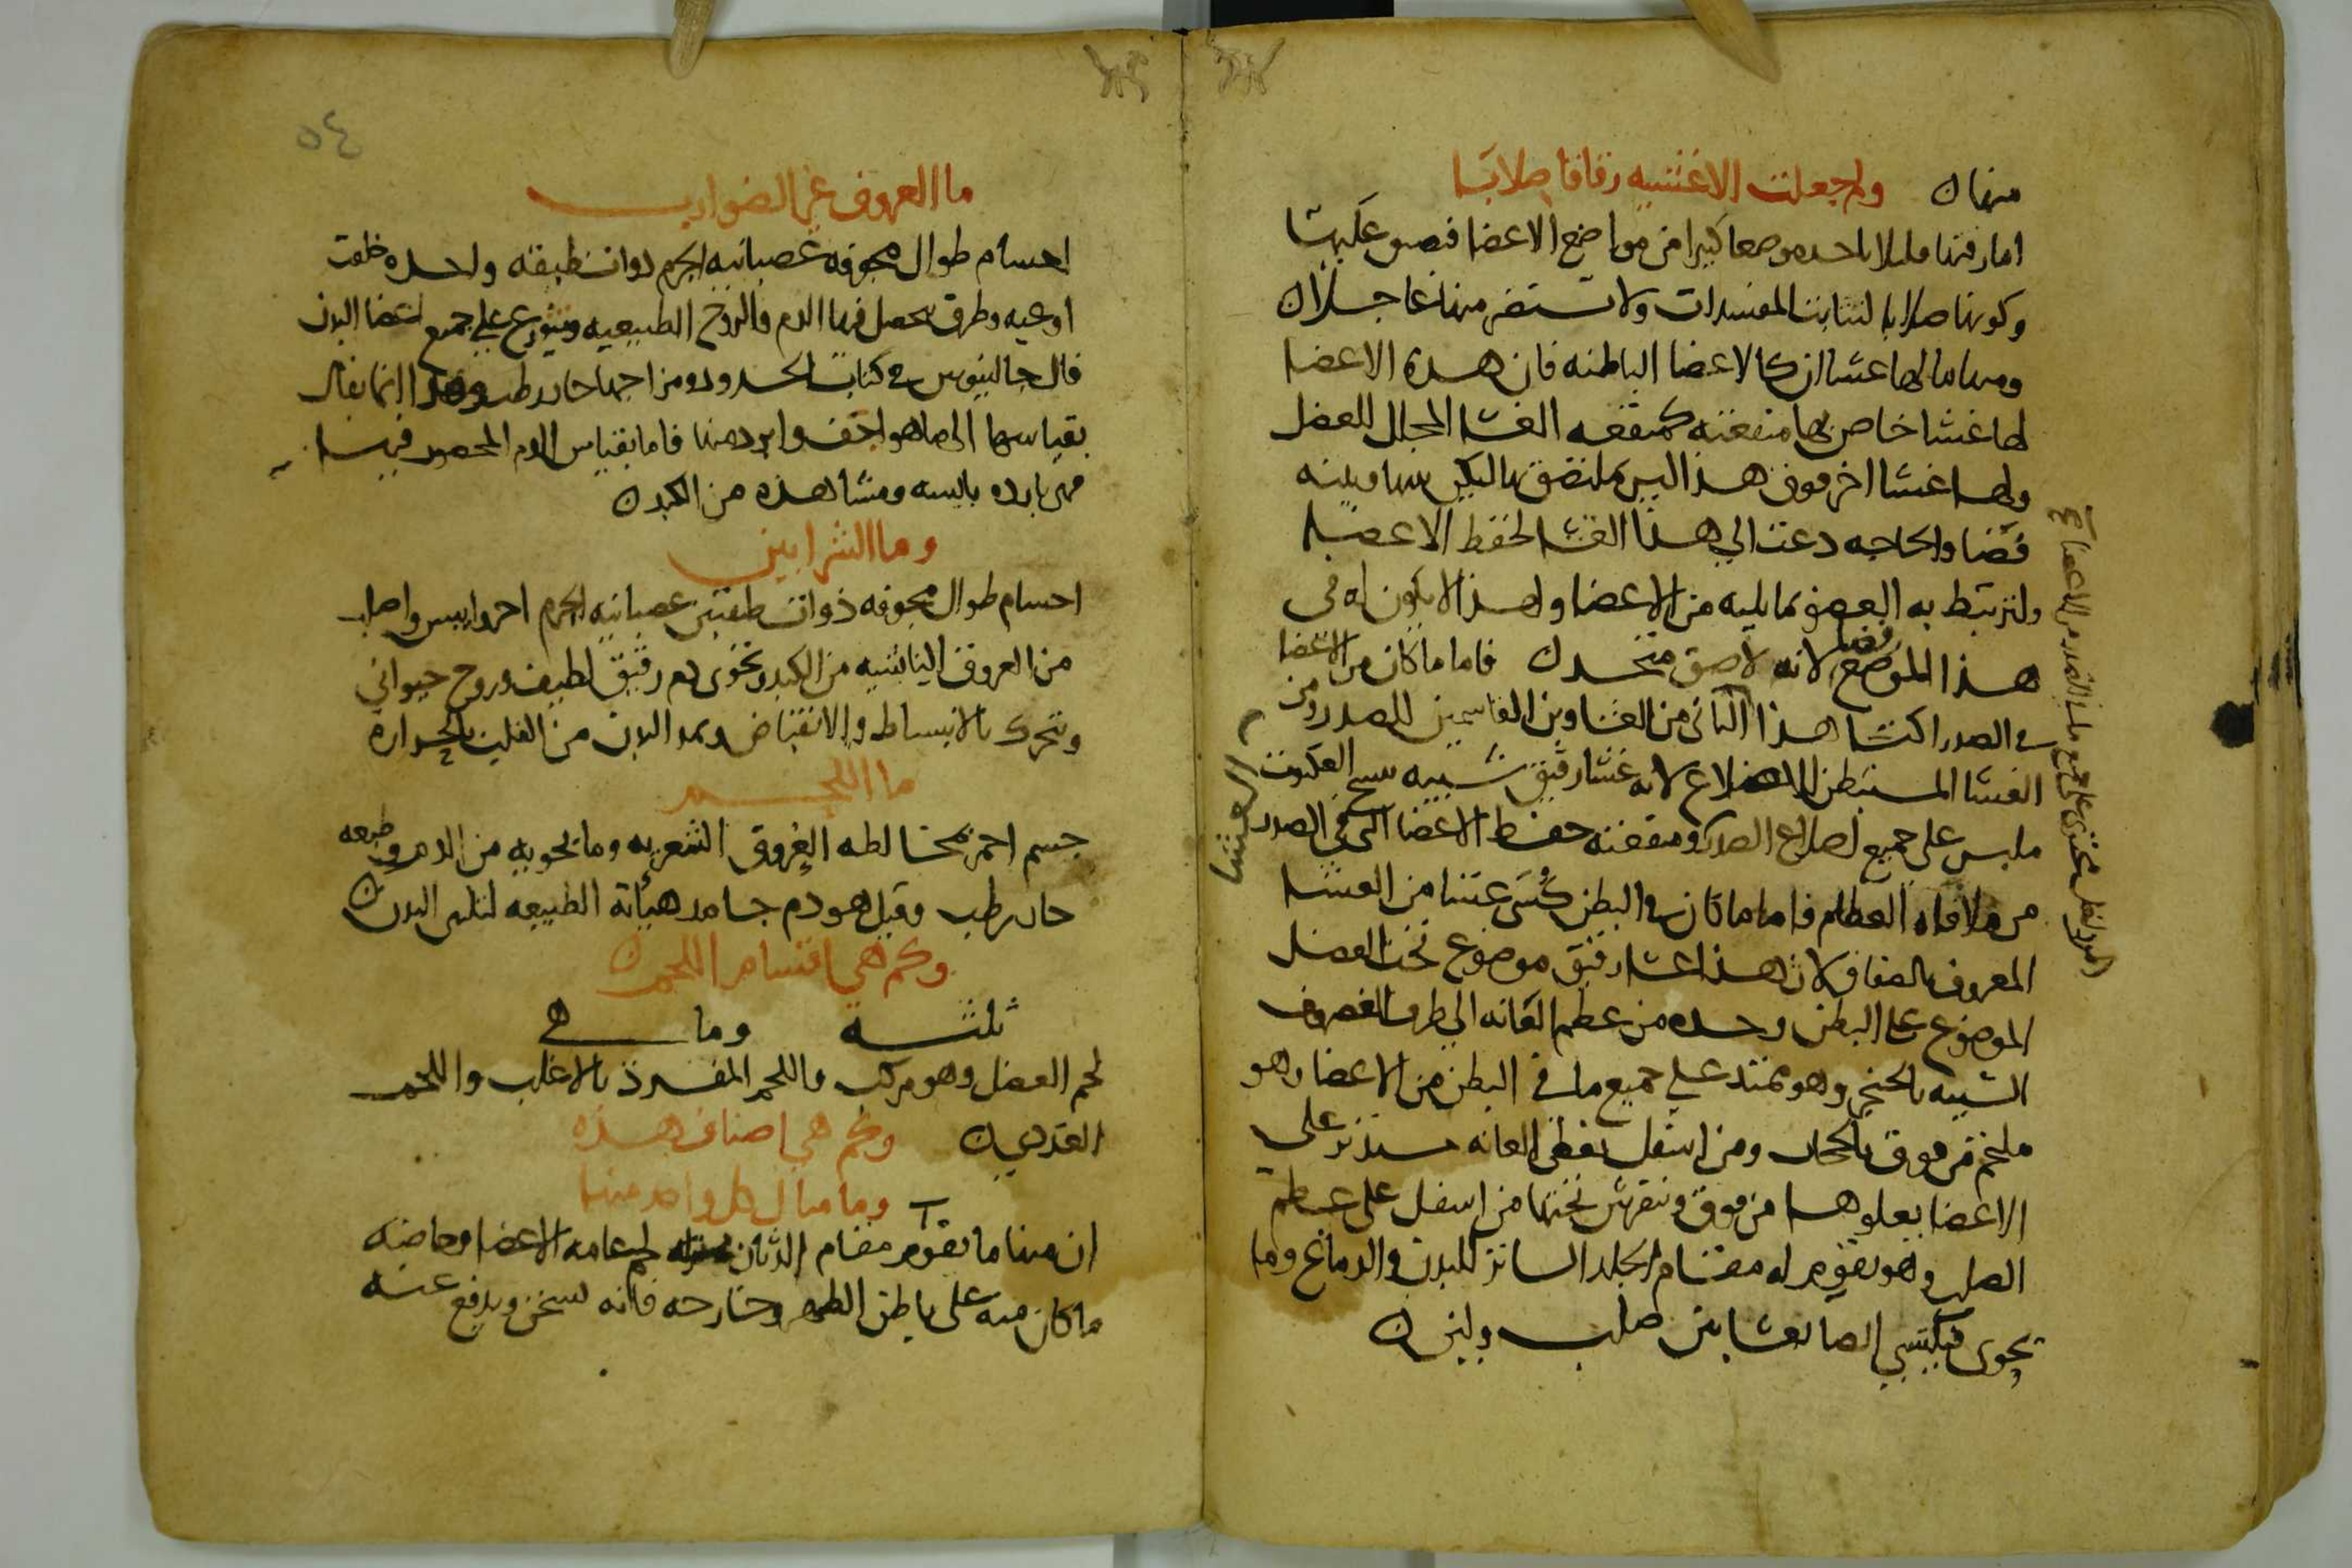 منها ولم جعلت الاغشيه رقاقا صلابا
اما رقتها فليلا ياخده موضعا كبيرا من مواضع الاعضا فيضيق عليها
وكونها صلابا لتثابت المفسدات ولا تستضر منها عاجلا
ومنها ما لها غشاان كالاعضا الباطنه فان هده الاعضا
لها غشا خاص بها منفعته كمنفعه الغشا المجلل للعضل
ولها غشا اخر فوق هذا ليس بملتصق بها لكن بينها وبينه
فضا والحاجه دعت الي هذا الغشا لحفظ الاعضا
ولترتبط به العضو بما يليه من الاعضا ولهذا لا يكون له في
هذا الموضع فضا لانه لاصق متحد فاما ما كان من الاعضا
في الصدر اكتسا هذا الثاني من الغشاوين القاسمين للصدر ومن
الغشا المستبطن للاضلاع لانه غشا رقيق شبيه بنسج العنكبوت
ملبس على جميع اضلاع الصدر ومنفعته حفظ الاعضا التي في الصدر
من ملاقاه العظام فاما ما كان في البطن كسي غشا من الغشا
المعروف بالصفاق لان هذا غشا رقيق موضوع تحت العضل
الموضوع على البطن وحده من عظم العانه الى طرف الغضروف
الشبيه بالخنجر وهو ممتد على جميع ما في البطن من الاعضا وهو
ملتحم من فوق بالحجاب ومن اسفل بعظم العانه مستدير على
الاعضا يعلوها من فوق وينفرش تحتها من اسفل على عظم
الصلب وهو يقوم له مقام الجلد الساتر للبدن والدماغ وما
يحوى فيكتسي ايضا بغشايين صلب ولين
الغشا
٥٤
ما العروق غير الضوارب
اجسام طوال مجوفه عصبانيه الجرم ذوات طبقه واحده خلقت
اوعيه وطرق يحصل فيها الدم والروح الطبيعيه ويتوزع على جميع اعضا البدن
قال جالينوس في كتاب الحدود ومزاجها حار رطب وهذا انما يقال
بقياسها الى ما هو اجف وابرد منها فاما بقياس الدم المحصور فيها
فهي بارده يابسه ومنشا هذه من الكبد
وما الشرايين
اجسام طوال مجوفه ذوات طبقتين عصبانيه الجرم احر وايبس واصلب
من العروق الناشيه من الكبد تحوى دم رقيق لطيف وروح حيواني
وتتحرك بالانبساط والانقباض وتمد البدن من القلب بالحراره
ما اللحم
جسم احمر تخالطه العروق الشعريه وما تحويه من الدم وطبعه
حار رطب وقيل هو دم جامد هيأته الطبيعه لتليين البدن
وكم هي اقسام اللحم
ثلثه وما هي
لحم العضل وهو مركب واللحم المفرد بالاغلب واللحم
الغددي وكم هي اصناف هذه
وما مثال كل واحد منها
ان منها ما يقوم مقام الدثار لحم عامه الاعضا وخاصه
ما كان منه على باطن الظهر وخارجه فانه يسخن ويدفع عنه